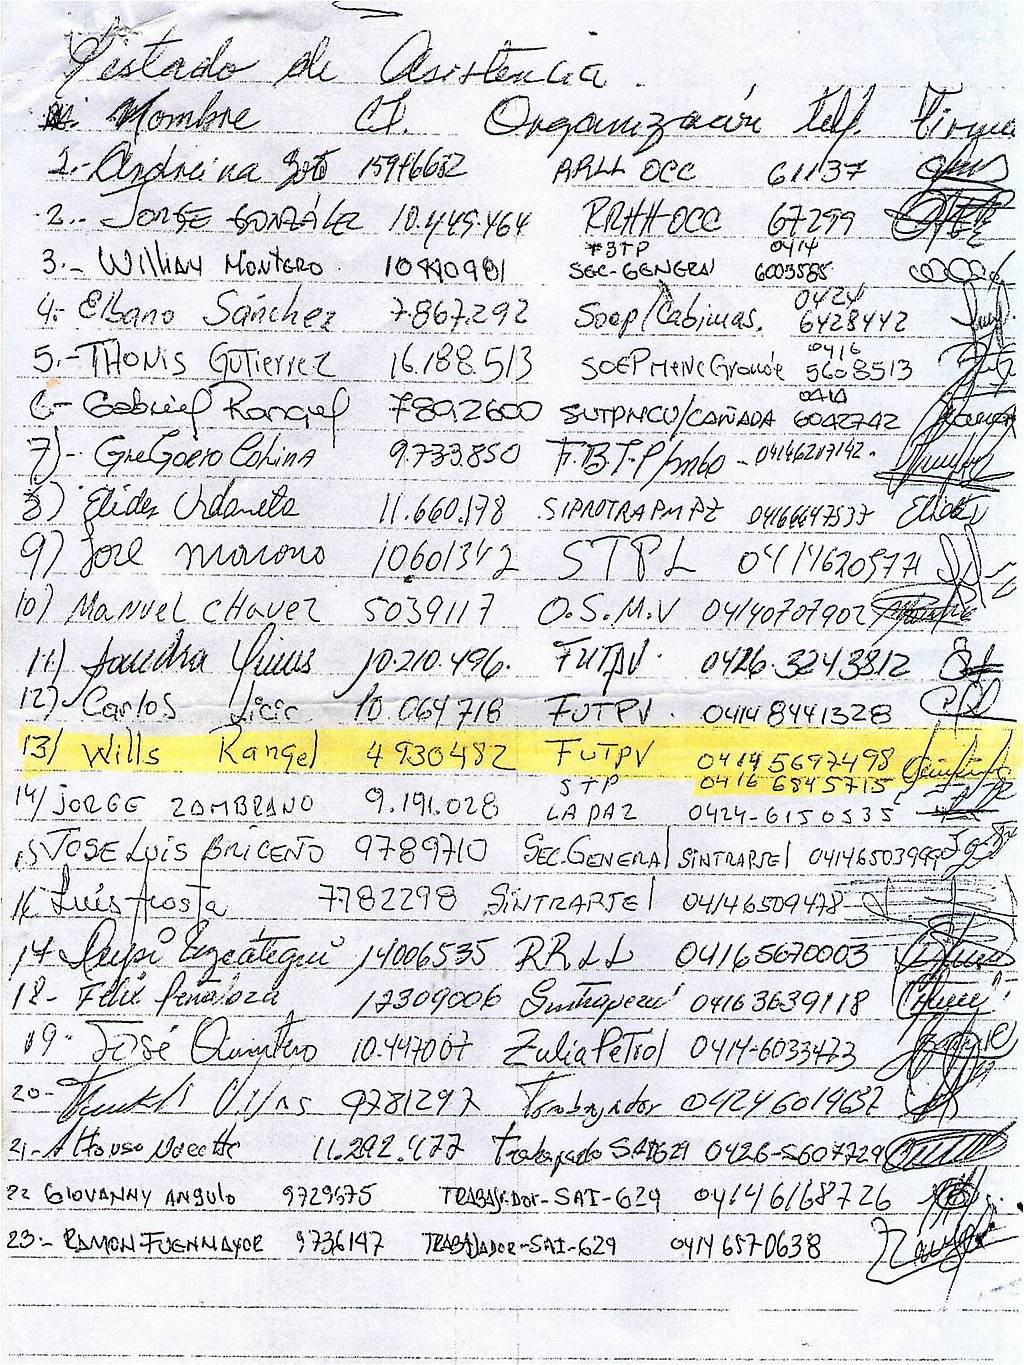 Listado de Asistencia
N: Nombre C.I. Organización telf. Firma
1.- Andreina Soto 15946682 ARLL OCC 61137
2.- JORGE GONZÁLEZ 10.449.464 RRHH-OCC 67299
3.- William Montero 10440981 STP SEC-GENERAl 0414 6003585
4.- Elbano Sánchez 7.867.292 Soep/Cabimas. 0424 6428442
5.- THONIS GUTIERREZ 16.188.513 SOEP MeNe Grande 0416 5608513
6.- Gabriel Rangel 7892600 SUTPMCU/CAÑADA 0414 6042742
7)- GreGoero Colina 9.733.850 F.B.T.P/mbo - 04146207142.
8) Elides Urdaneta 11.660.178 SIPROTRAPMPZ 04166647537
9) José Moreno 10601342 STPL 04141620577
10) Manuel CHavez 5039117 O.S.M.V 04140707902
11) 10.210.496. FUTPV. 0426.3243812
12) Carlos 10.064718 FUTPV. 04148441328
13/ Wills Rangel 4930482 FUTPV 04145697498 04166845715
14/ JORGE ZAMBRANO 9.191.028 STP LA PAZ 0424-6150535
15 JOSE LUIS BRICEÑO 9789710 SEC.GENERAl SINTRARSEl
16 Luis Acosta 7782298 SINTRARSEl 04146509478
17- 14006535 RRLL 04165670003
18- Felix Peñaloza 12309006 04163639118
19- José Quintero 10.447007 ZuliaPetrol 0414-6033473
20- 9781297 Trabajador 04246019637
21- Alfonso 11.292.477 0426-5607729
22 GIOVANNY ANGULO 9729575 TRABAJADOR-SAI-G29 04146168726
23.- RAMON FUENMAYOR 9736147 TRABAJADOR-SAI-G29 04146570638